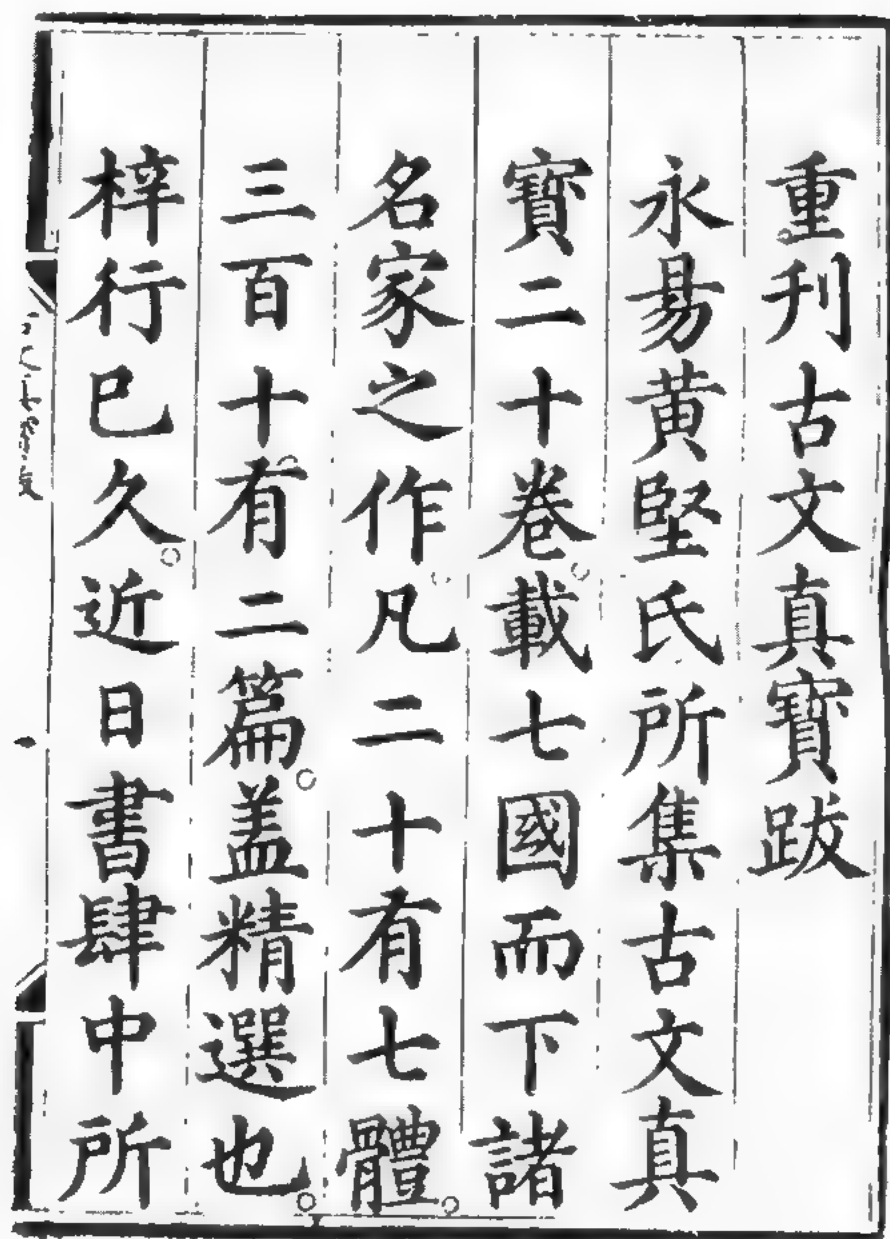 重刊古文真寶跋
永昜黄堅氏所集古文真
寶二十卷載七國而下諸
名家之作凡二十有七體
三百十有二篇盖精選也
梓行已久近日書肆中所